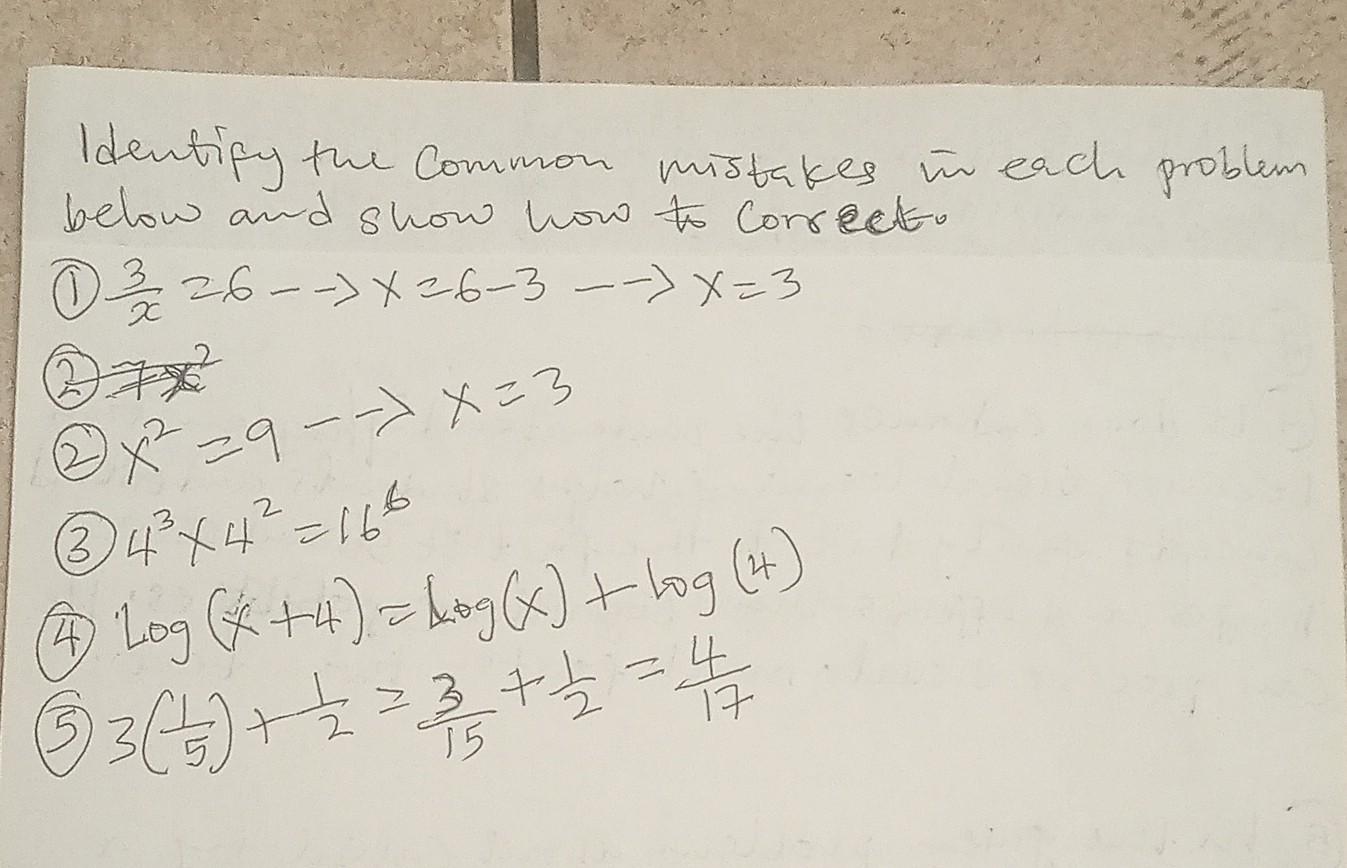 Identify the Common mistakes in each problem
below and show how to Correct.
① 3/x = 6 --> x = 6-3 --> x = 3
② 7x²
② x² = 9 --> x = 3
③ 4³ x 4² = 16⁶
④ Log (x+4) = Log(x) + log (4)
⑤ 3(1/5) + 1/2 = 3/15 + 1/2 = 4/17